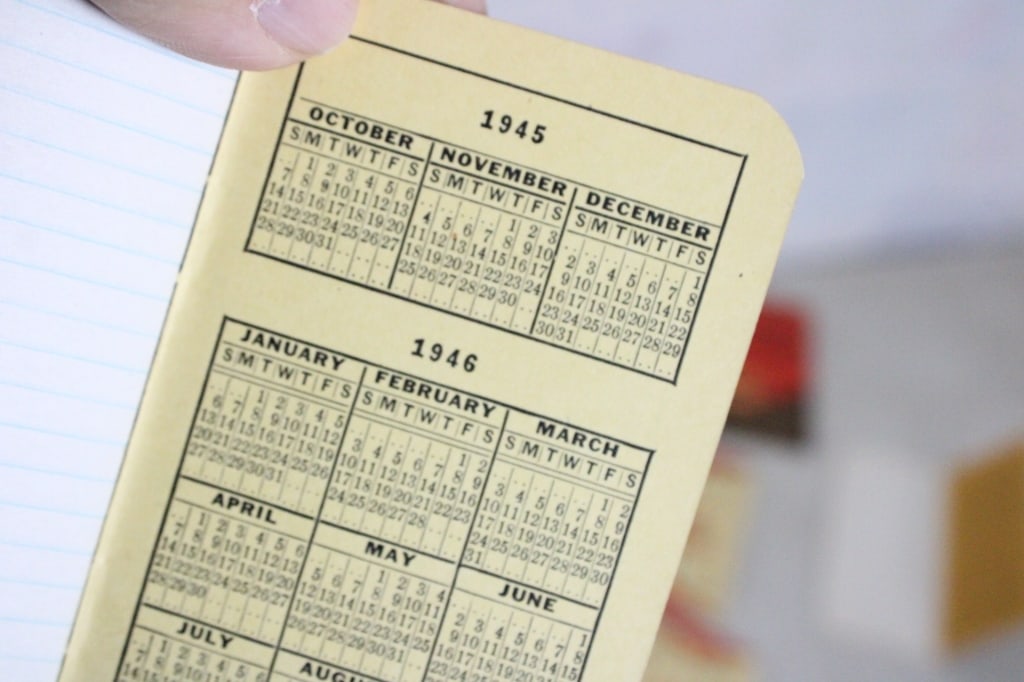 1945
OCTOBER
S M T W T F S
1 2 3 4 5 6
7 8 9 10 11 12 13
14 15 16 17 18 19 20
21 22 23 24 25 26 27
28 29 30 31
NOVEMBER
S M T W T F S
1 2 3
4 5 6 7 8 9 10
11 12 13 14 15 16 17
18 19 20 21 22 23 24
25 26 27 28 29 30
DECEMBER
S M T W T F S
1
2 3 4 5 6 7 8
9 10 11 12 13 14 15
16 17 18 19 20 21 22
23 24 25 26 27 28 29
30 31
1946
JANUARY
S M T W T F S
1 2 3 4 5
6 7 8 9 10 11 12
13 14 15 16 17 18 19
20 21 22 23 24 25 26
27 28 29 30 31
FEBRUARY
S M T W T F S
1 2
3 4 5 6 7 8 9
10 11 12 13 14 15 16
17 18 19 20 21 22 23
24 25 26 27 28
MARCH
S M T W T F S
1 2
3 4 5 6 7 8 9
10 11 12 13 14 15 16
17 18 19 20 21 22 23
24 25 26 27 28 29 30
31
APRIL
1 2 3 4 5 6
7 8 9 10 11 12 13
14 15 16 17 18 19 20
21 22 23 24 25 26 27
28 29 30
MAY
1 2 3 4
5 6 7 8 9 10 11
12 13 14 15 16 17 18
19 20 21 22 23 24 25
26 27 28 29 30 31
JUNE
1
2 3 4 5 6 7 8
9 10 11 12 13 14 15
16 17
JULY
1 2 3 4 5 6
7 8 9 10 11
AUGU